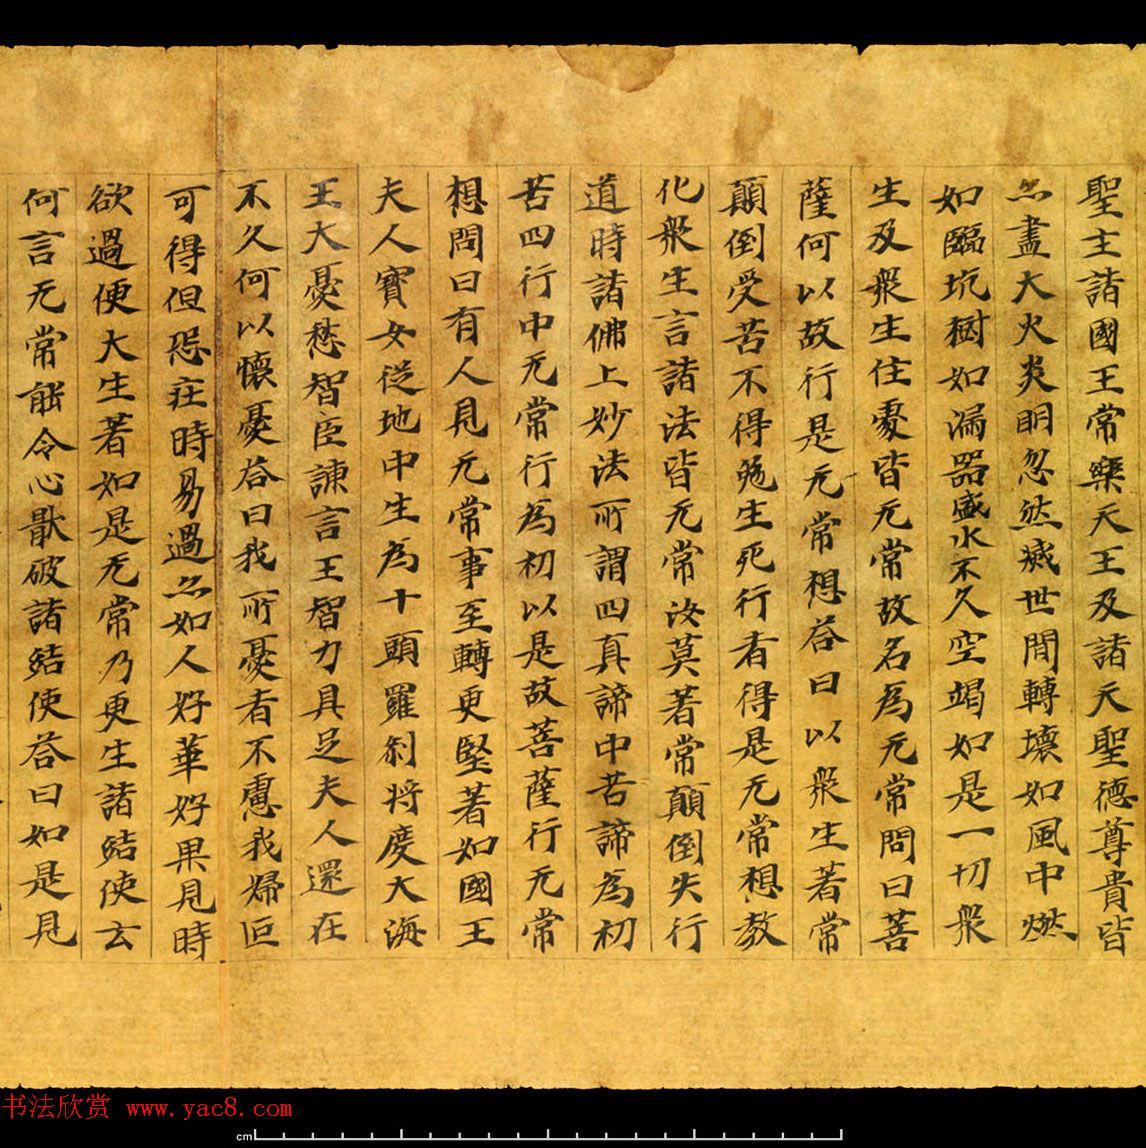 聖主諸國王常樂天王及諸天聖德尊貴皆
亦盡大火炎明忽然滅世間轉壞如風中燃
如臨坑樹如漏器盛水不久空竭如是一切衆
生及衆生住處皆无常故名為无常問曰菩
薩何以故行是无常想荅曰以衆生著常
顛倒受苦不得勉生死行者得是无常想教
化衆生言諸法皆无常汝莫著常顛倒失行
道時諸佛上妙法所謂四真諦中苦諦為初
苦四行中无常行為初以是故菩薩行无常
想問曰有人見无常事至轉更堅著如國王
夫人寶女從地中生為十頭羅剎將度大海
王大憂愁智臣諫言王智力具足夫人還在
不久何以懷憂荅曰我所憂者不慮我婦叵
可得但恐壯時易過亦如人好華好果見時
欲過便大生著如是无常乃更生諸結使云
何言无常能令心猒破諸結使荅曰如是見
书法欣赏 www.yac8.com
cm